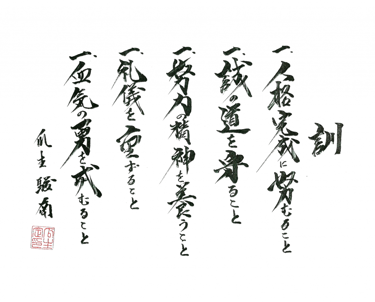 訓
一、人格完成に努むること
一、誠の道を守ること
一、努力の精神を養うこと
一、礼儀を重ずること
一、血気の勇を戒むること